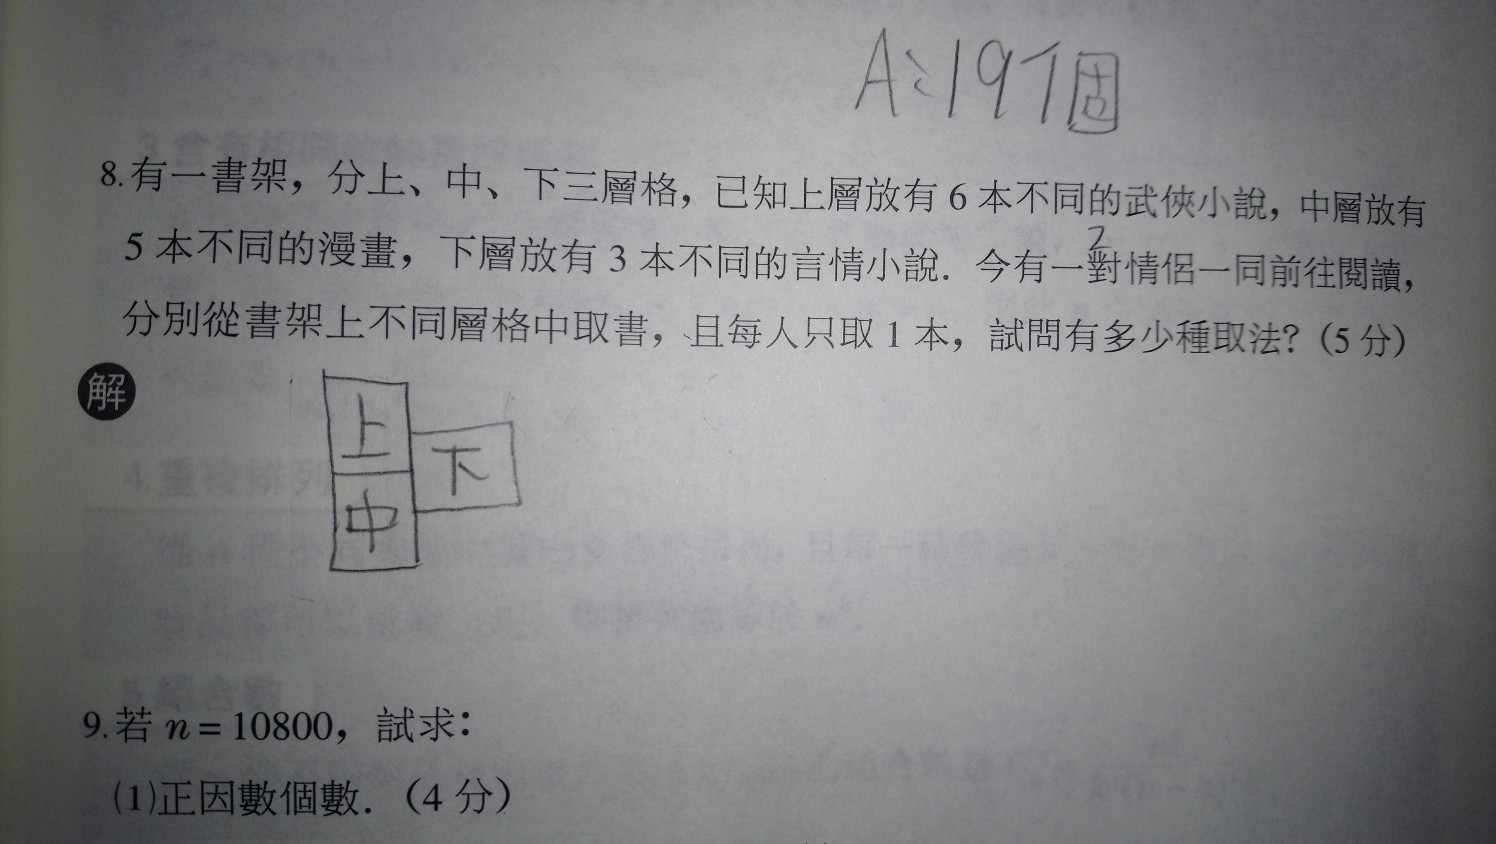 A:191個
8.有一書架，分上、中、下三層格，已知上層放有 6 本不同的武俠小說，中層放有
2
5 本不同的漫畫，下層放有 3 本不同的言情小說．今有一對情侶一同前往閱讀，
分別從書架上不同層格中取書，且每人只取 1 本，試問有多少種取法？（5 分）
解
上
下
中
9.若 n = 10800，試求：
(1)正因數個數．（4 分）